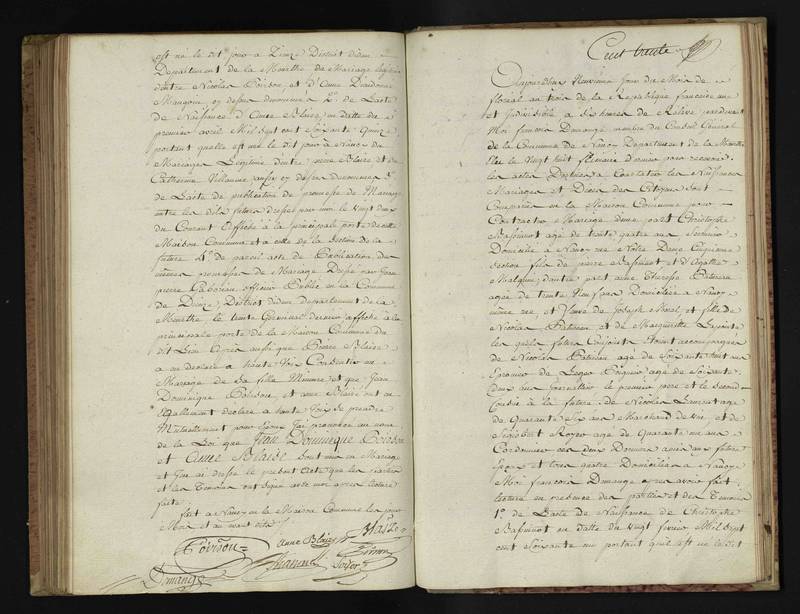 est né le dit jour a Dieuze District dudem
Departement de la Meurthe de Mariage legitime
d'entre Nicolas Poirson et d'Anne Dieudonné
Mangeon cy dessus denommés 2.° de l'acte
de Naissance d'Anne Blaise en datte du
premier avril Mil sept cent Soixante Quinze
portant quelle est née le dit jour à Nancy du
Mariage Legitime d'entre pierre Blaise et de
Catherine Villaume aussi cy dessus denommés 3.°
de l'acte de publication de promesse de Mariage
entre les dits futurs dressé par moi le vingt deux
du Courant affiché a la principale porte de cette
Maison Commune et a celle de la Section de la
future 4.° de pareil acte de Publication de
mêmes promesses de Mariage Dressé par Jean
pierre officier Public en la Commune
de Dieuze District dudem departement de la
Meurthe le trente Germinal dernier affiché à la
principale porte de la Maison Commune du
dit Lieu Après aussi que Pierre Blaise
a eu declaré a haute Voix Consentir au
Mariage de Sa fille Mineure et que Jean
Dominique Poirson et anne Blaise ont eu
Egallement declaré a haute Voix se prendre
Mutuellement pour Epoux J'ai prononcé au nom
de la Loi que Jean Dominique Poirson
et Anne Blaise sont unis en Mariage
et J'en ai dressé le present acte que les parties
et les Temoins ont signé avec moi apres lecture
faite.
fait a Nancy en la Maison Commune les jour
Mois et an avant dits
Poirson anne Blaise Blaise
Demange
Cent trente
Aujourdhui Neuvieme jour du Mois de
floreal an trois de la Republique francaise une
et Indivisible a dix heures de Relevé pardevant
Moi francois Demange membre du Conseil General
de la Commune de Nancy Departement de la Meurthe
Elu le Vingt huit frimaire d'annee pour recevoir
les actes Destinés a Constater les Naissances
Mariages et Décès des Citoyens Sont
Comparus en la Maison Commune pour
Contracter Mariage d'une part Christophe
Bassinot agé de trente quatre ans
Domicilié a Nancy rue Notre Dame Cinquieme
Section fils de pierre Bassinot et d'Agathe
d'autre part anne Therese
agée de trente neuf ans Domiciliée a Nancy
même rue et Veuve de Joseph Morel et fille de
Nicolas et de Marguerite
les quels futurs Conjoints etoient accompagnés
de Nicolas agé de Soixante huit ans
agé de Soixante
deux ans Journaliers le premier pere et le second
Cousin a la future de Nicolas Laurent agé
de Quarante Six ans Marchand de Vin et de
Sigisbert Royer agé de Quarante un ans
Cordonnier ces deux Derniers amis aux futurs
Epoux et tous quatre Domiciliés a Nancy
Moi francois Demange apres avoir fait
lecture en presence des parties et des Temoins
1.° de l'acte de Naissance de Christophe
Bassinot en datte du vingt fevrier Mil Sept
cent Soixante un portant qu'il est né ledit